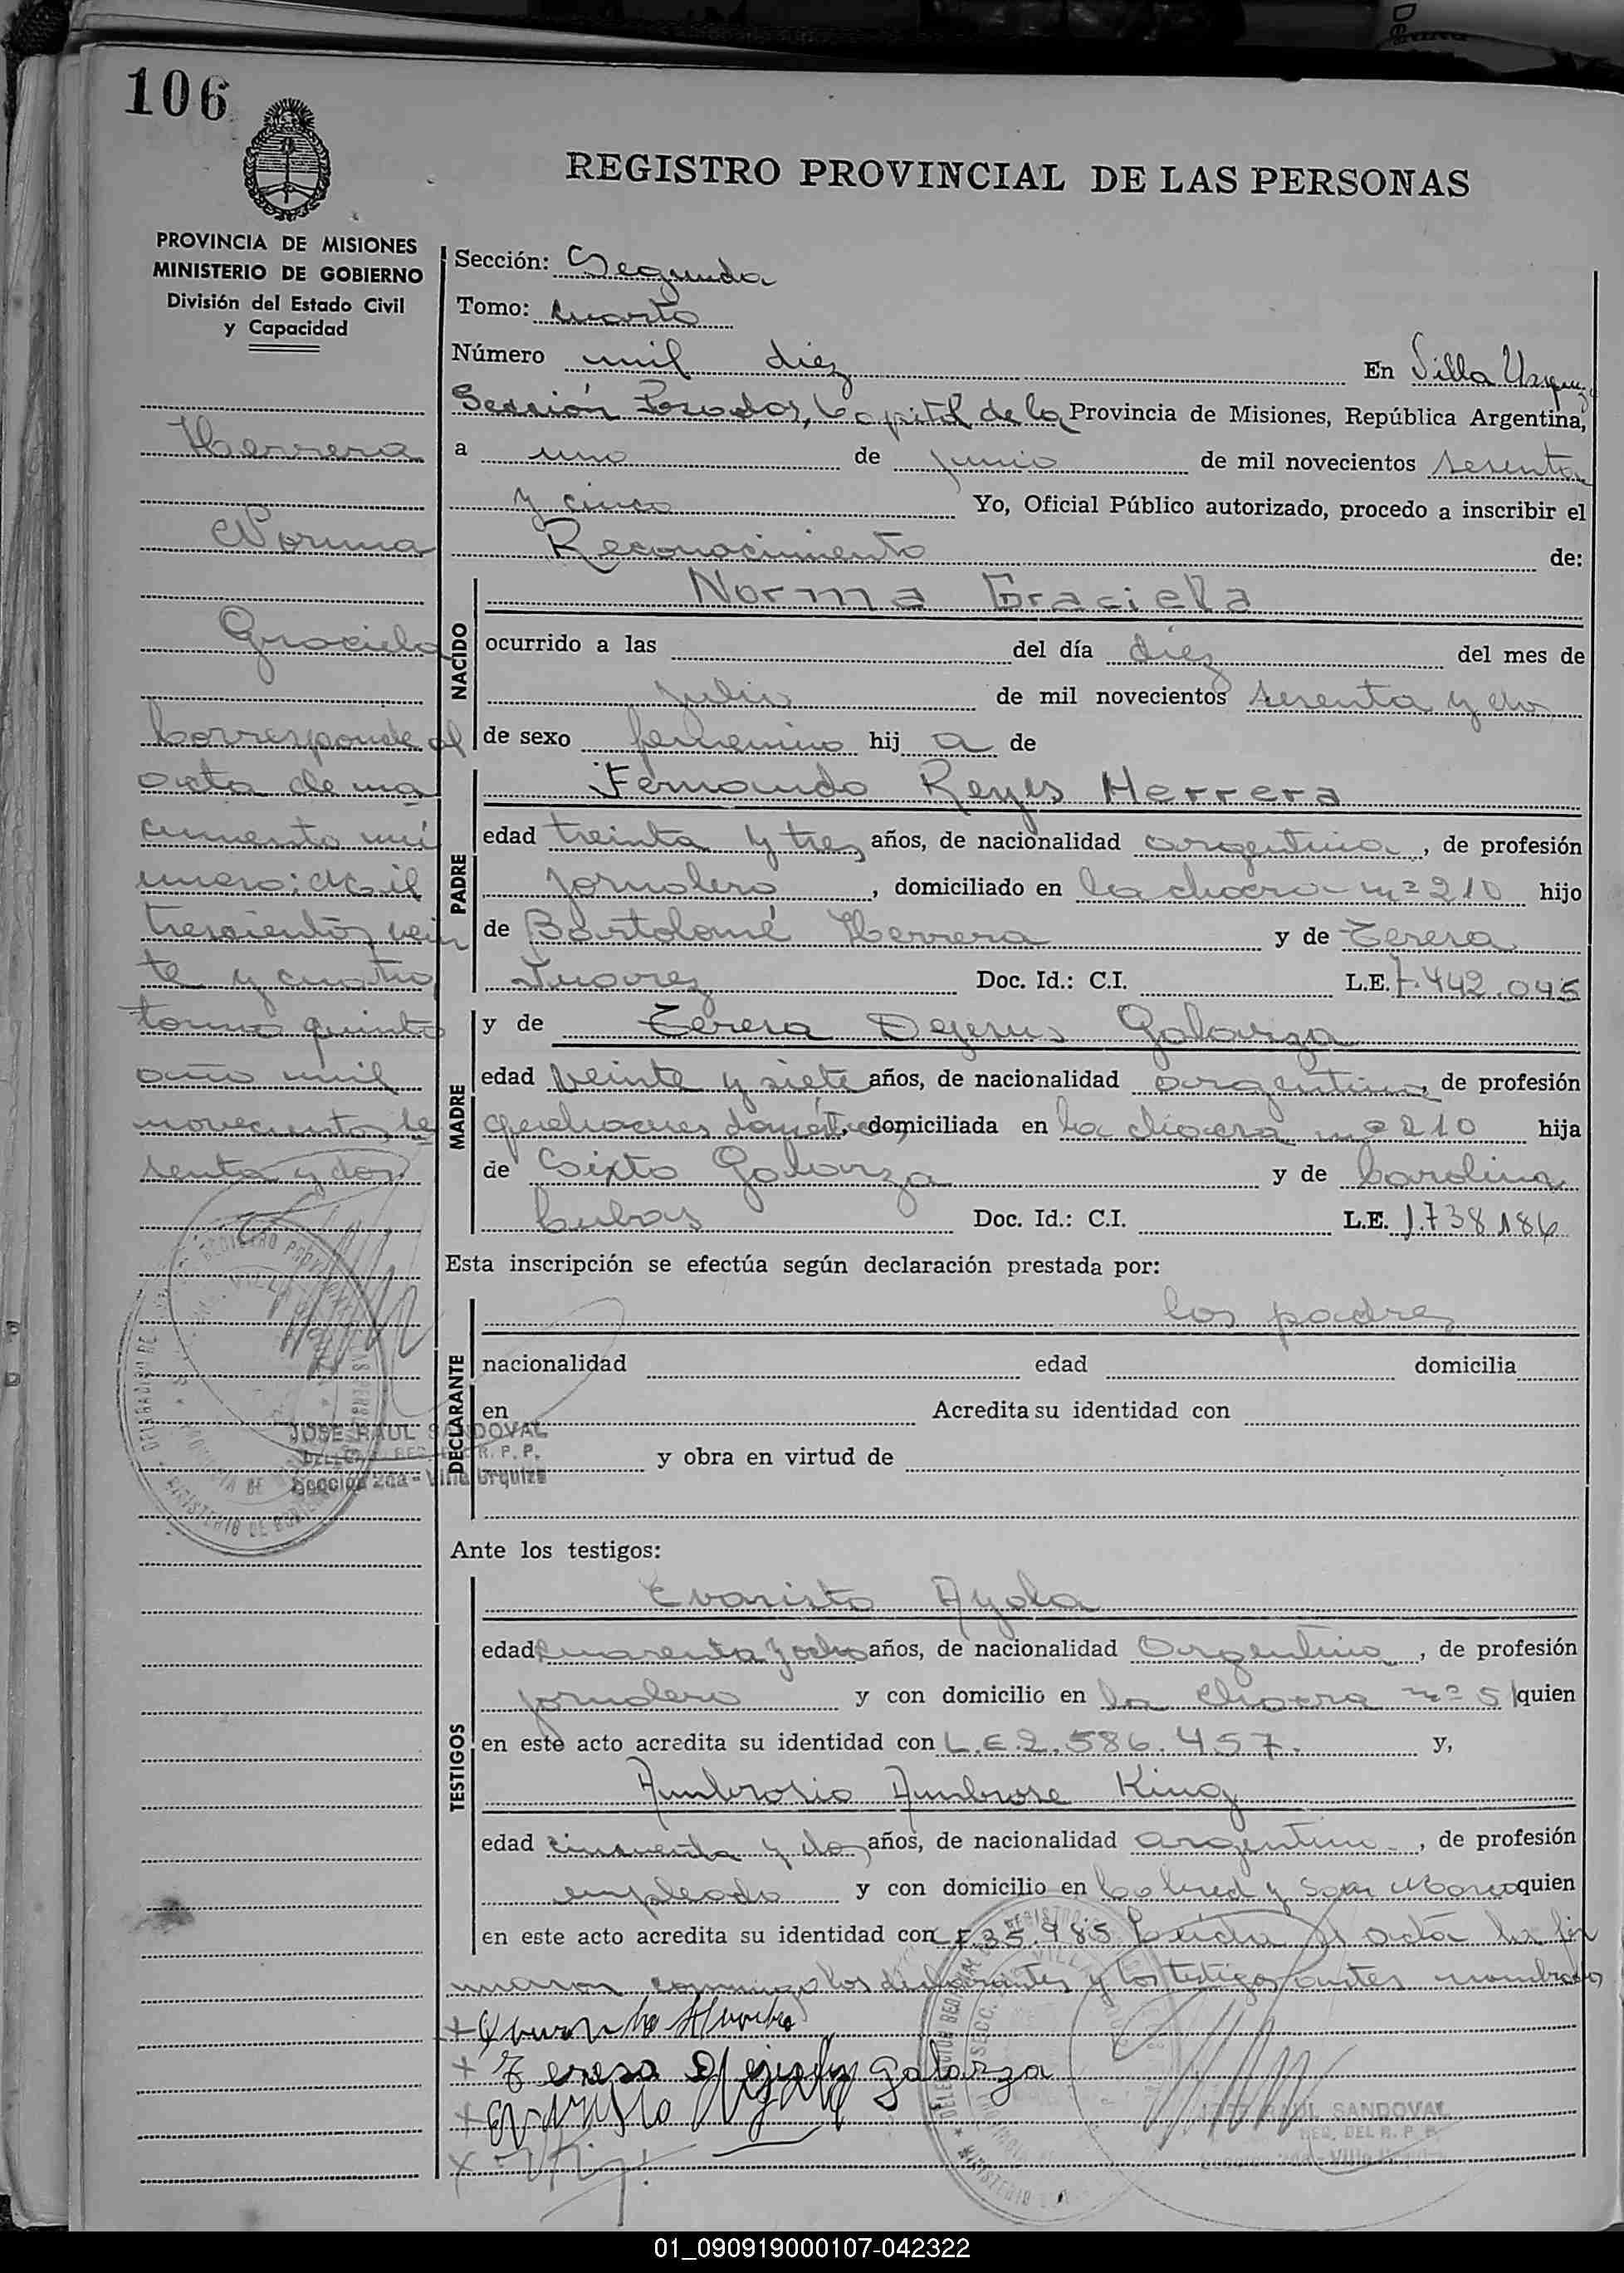 106
REGISTRO PROVINCIAL DE LAS PERSONAS
PROVINCIA DE MISIONES
MINISTERIO DE GOBIERNO
División del Estado Civil
y Capacidad
Herrera
Norma
Graciela
Corresponde al
acta de na
cimiento nú
mero: Mil
trescientos vein
te y cuatro
tomo quinto
año mil
novecientos se
senta y dos
JOSE RAUL SANDOVAL
R. P. P.
Sección 2da - Villa Urquiza
Sección: Segunda
Tomo: Cuarto
Número mil diez En Villa Urquiza
Sección Posadas, Capital de la Provincia de Misiones, República Argentina,
a uno de junio de mil novecientos sesenta
y cinco Yo, Oficial Público autorizado, procedo a inscribir el
Reconocimiento de:
NACIDO
Norma Graciela
ocurrido a las del día diez del mes de
julio de mil novecientos sesenta y dos
de sexo femenino hij a de
PADRE
Fernando Reyes Herrera
edad treinta y tres años, de nacionalidad argentina, de profesión
jornalero, domiciliado en la chacra nº 210 hijo
de Bartolomé Herrera y de Teresa
Juarez Doc. Id.: C.I. L.E. 7.442.045
MADRE
y de Teresa Dejesus Galarza
edad veinte y siete años, de nacionalidad argentina, de profesión
quehaceres domésticos, domiciliada en la chacra nº 210 hija
de Sixto Galarza y de Carolina
Cubas Doc. Id.: C.I. L.E. 1.738.186
Esta inscripción se efectúa según declaración prestada por:
DECLARANTE
los padres
nacionalidad edad domicilia
en Acredita su identidad con
y obra en virtud de
Ante los testigos:
TESTIGOS
Evaristo Ayala
edad cuarenta y ocho años, de nacionalidad Argentina, de profesión
jornalero y con domicilio en la chacra nº 51 quien
en este acto acredita su identidad con L.E. 2.586.457. y,
Ambrosio Ambrose King
edad cincuenta y dos años, de nacionalidad argentina, de profesión
empleado y con domicilio en y San Marcos quien
en este acto acredita su identidad con 35.985 Leída el acta la fir
maron conmigo los declarantes y los testigos antes nombrados
Teresa Dejesus Galarza
Evaristo Ayala
RAUL SANDOVAL
REG. DEL R. P. P.
01_090919000107-042322